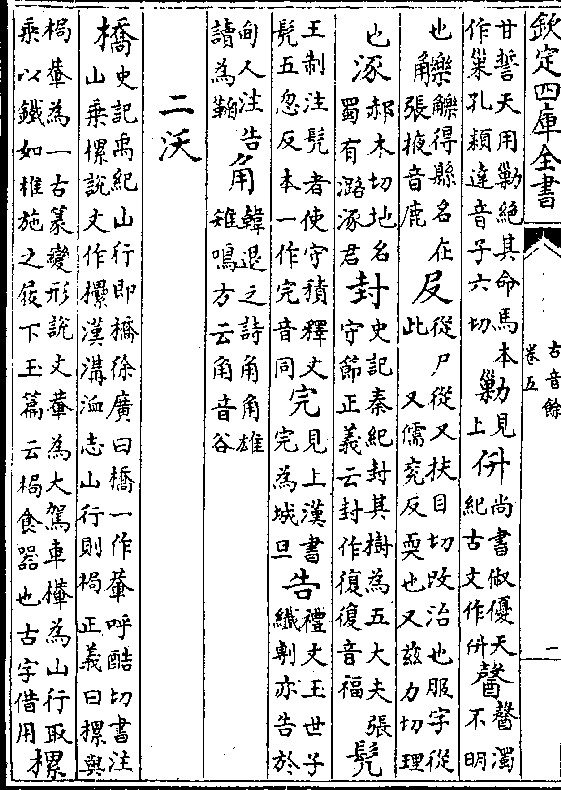 欽定四庫全書
古音餘
卷五
一
甘誓天用勦絶其命馬本
作巢孔穎達音子六切
勦
見
上
佾
尚書俶優天
紀古文作佾
謦
謦濁
不明
也
觻觻得縣名在
角張掖音鹿
𠬝
從尸從又扶目切攺治也服字從
此 又儒兖反耎也又兹力切理
也
涿
郝木切地名
蜀有潞涿君
封
史記秦紀封其樹為五大夫張
守節正義云封作復復音福
髠
王制注髠者使守積釋文
髠五忽反本一作完音同
完
見上漢書
完為城旦
告
禮文王世子
纖剸亦告於
甸人注告
讀為鞫
角
韓退之詩角角雄
雉鳴方云角音谷
二沃
橋
史記禹紀山行即橋徐廣曰橋一作輂呼酷切書注
山乗樏說文作欙漢溝洫志山行則梮正義曰樏與
梮輂為一古篆變形說文輂為大駕車欙為山行取
乘以鐵如椎施之屐下玉篇云梮食器也古字借用
樏